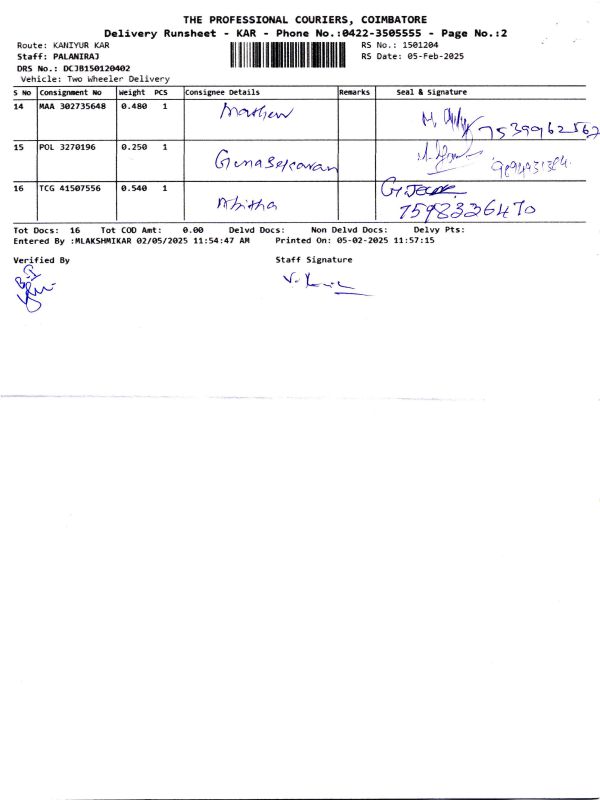 THE PROFESSIONAL COURIERS, COIMBATORE
Delivery Runsheet - KAR - Phone No.:0422-3505555 - Page No.:2
Route: KANIYUR KAR RS No.: 1501204
Staff: PALANIRAJ RS Date: 05-Feb-2025
DRS No.: DCJB150120402
Vehicle: Two Wheeler Delivery
S No Consignment No Weight PCS Consignee Details Remarks Seal & Signature
14 MAA 302735648 0.480 1 Mathew 7539962562
15 POL 3270196 0.250 1 Gunasekaran
16 TCG 41507556 0.540 1 Abitha
7598326470
Tot Docs: 16 Tot COD Amt: 0.00 Delvd Docs: Non Delvd Docs: Delvy Pts:
Entered By :MLAKSHMIKAR 02/05/2025 11:54:47 AM Printed On: 05-02-2025 11:57:15
Verified By Staff Signature